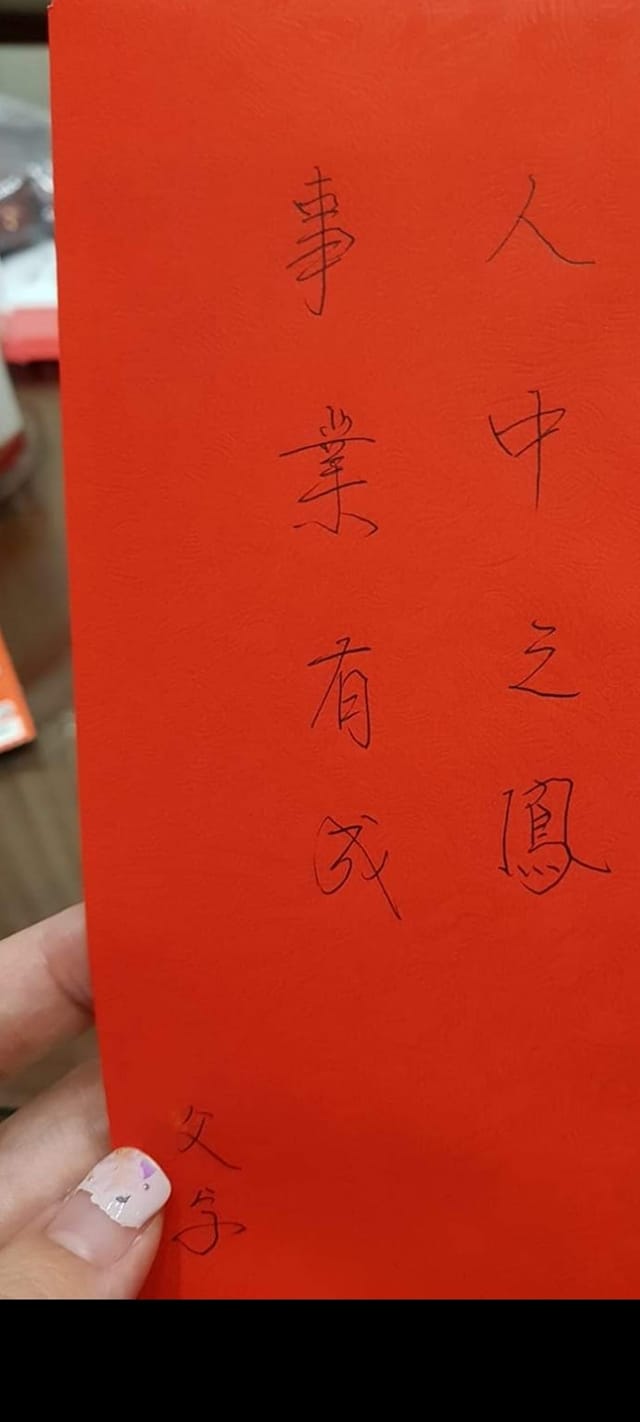 人中之鳳
事業有成
父字